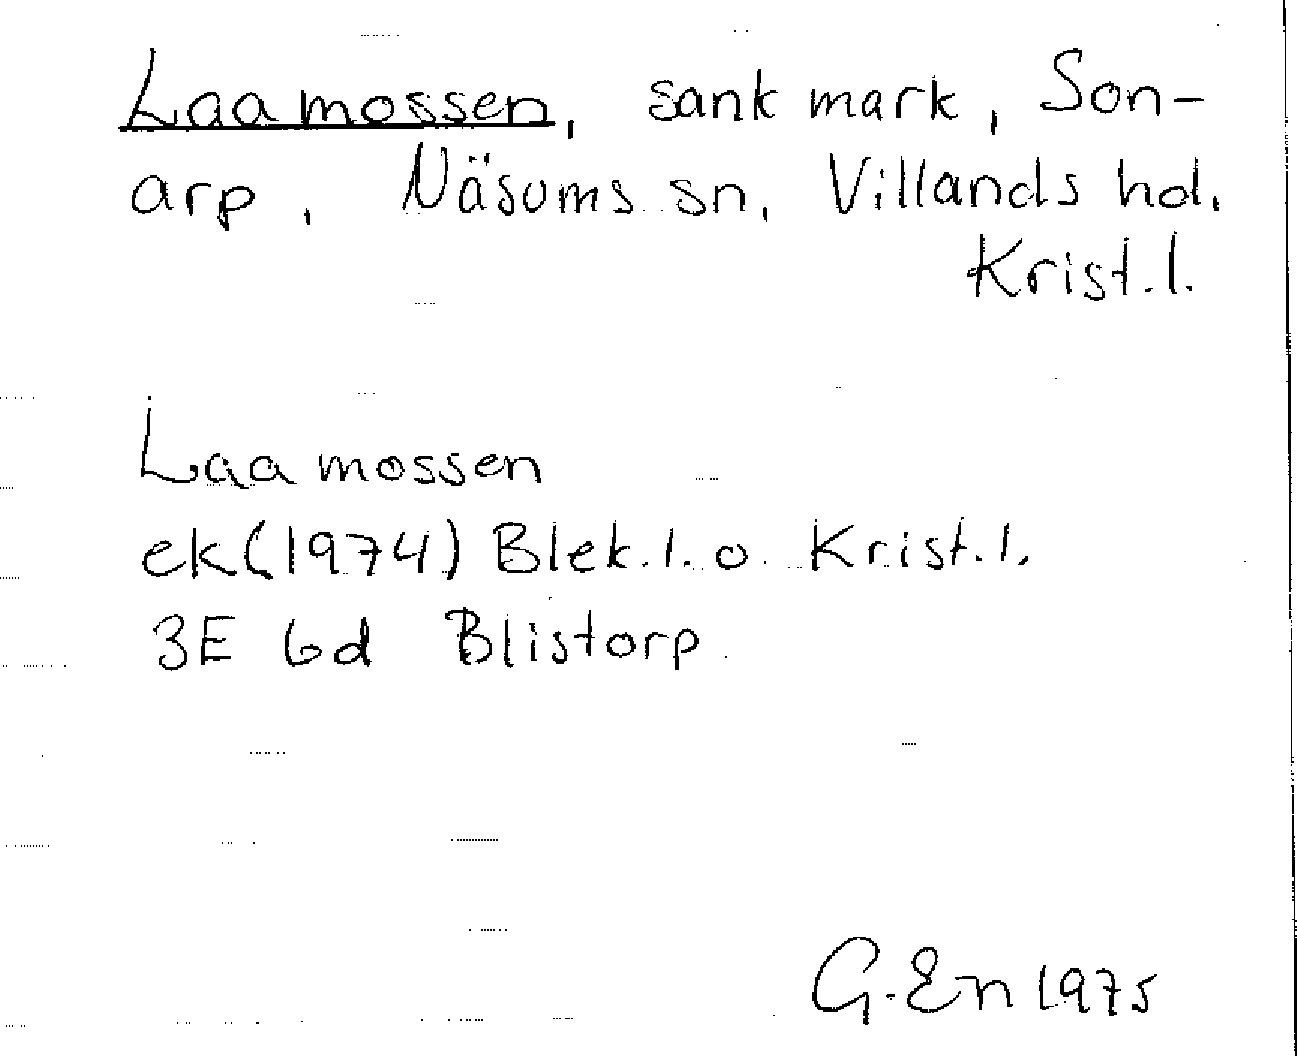 Laamossen, sank mark, Son-
arp, Näsums sn, Villands hd.
Krist.l.
Laamossen
ek(1974) Blek.l. o. Krist.l.
3E 6d Blistorp
G.En 1975